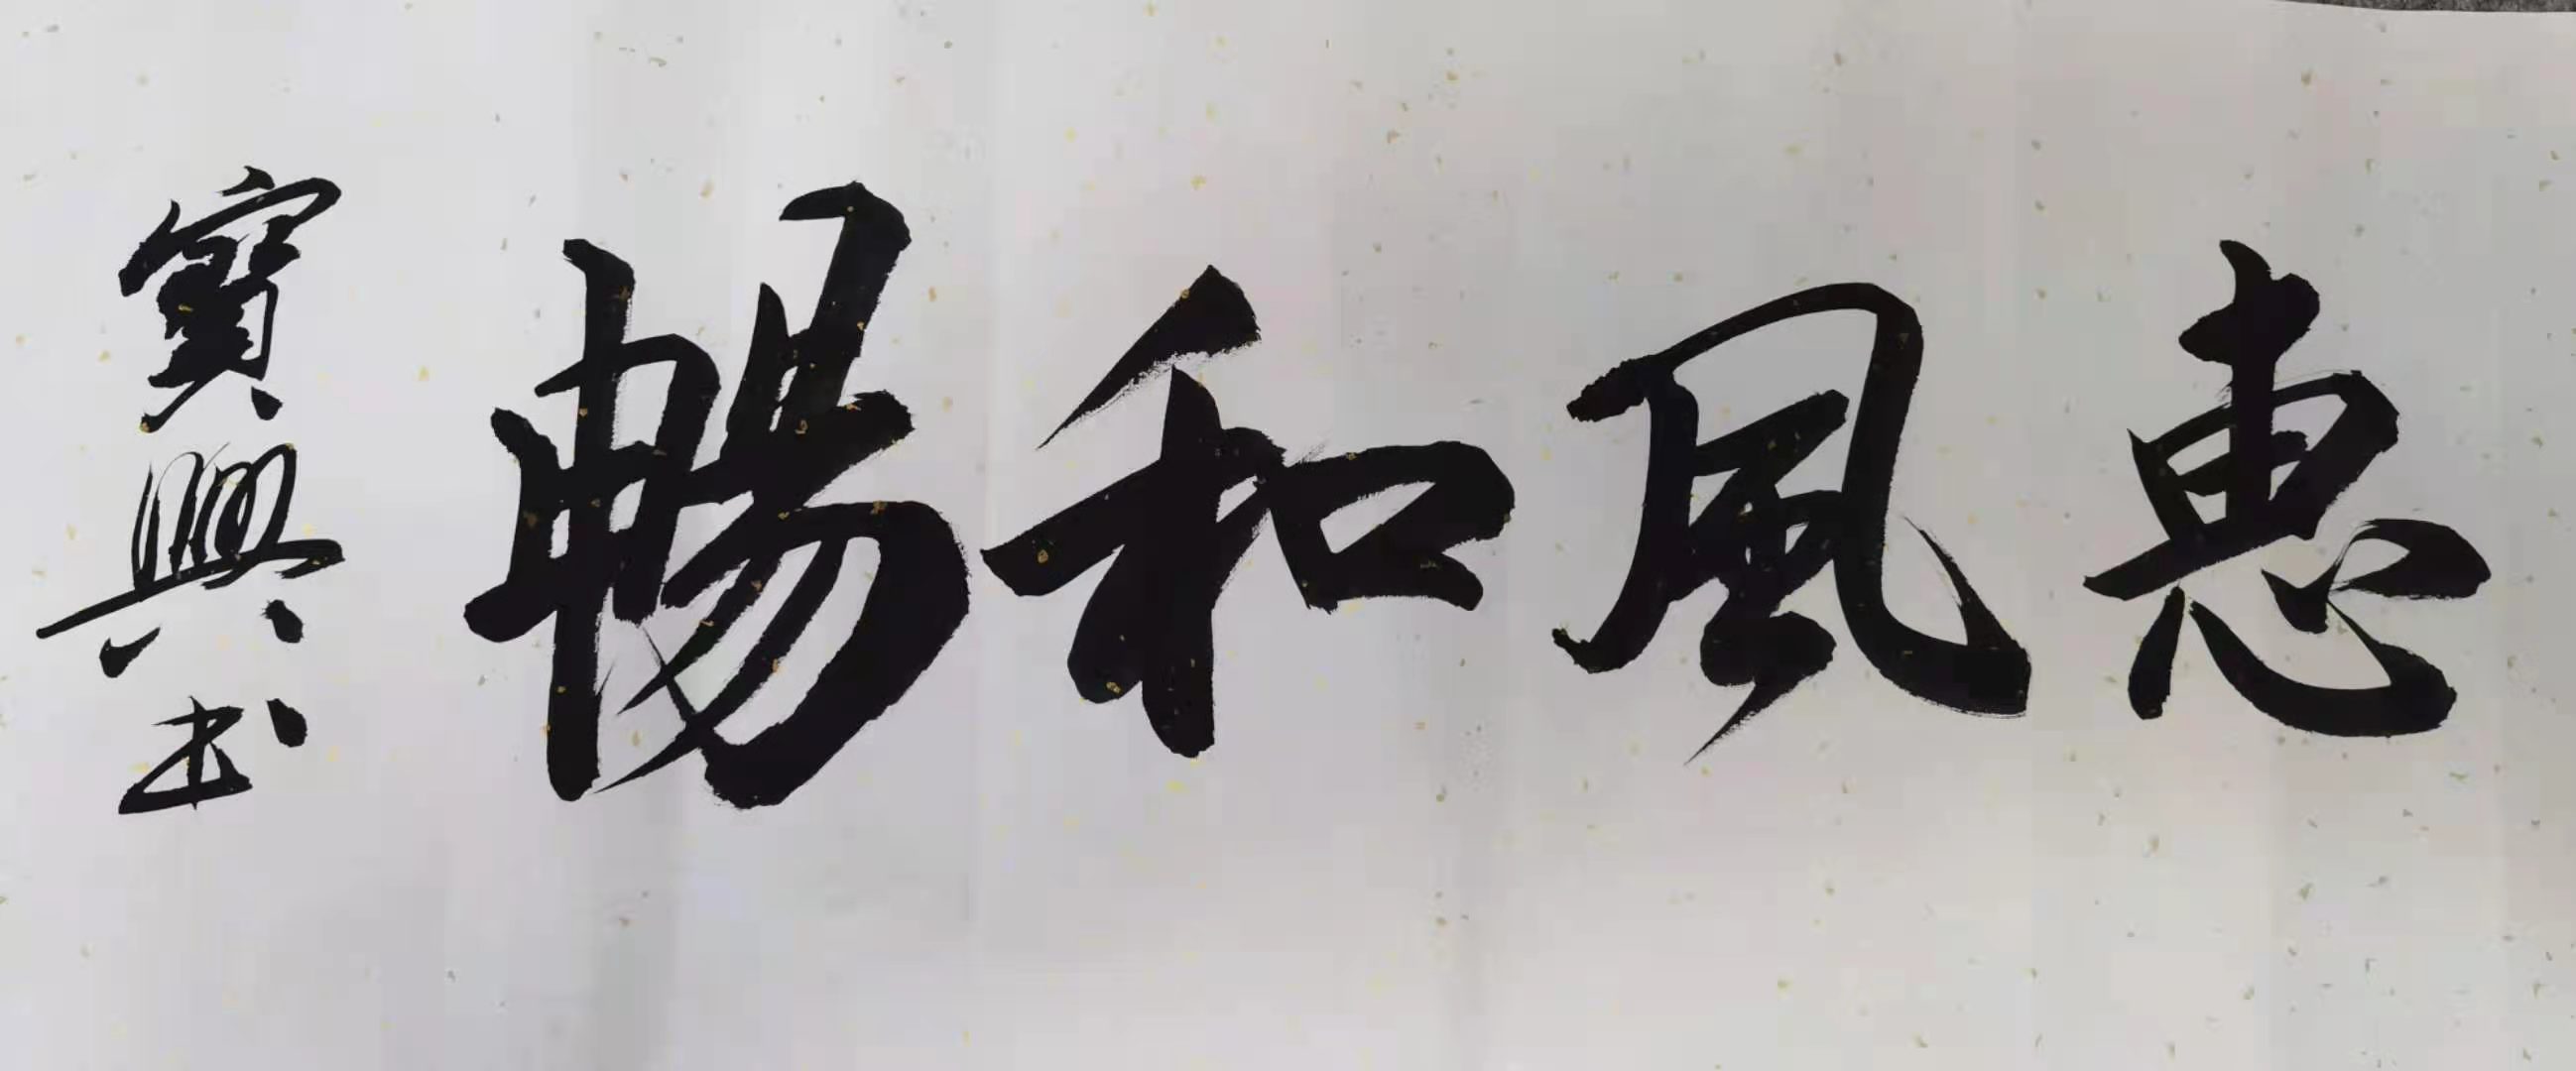 惠風和暢
寶興书